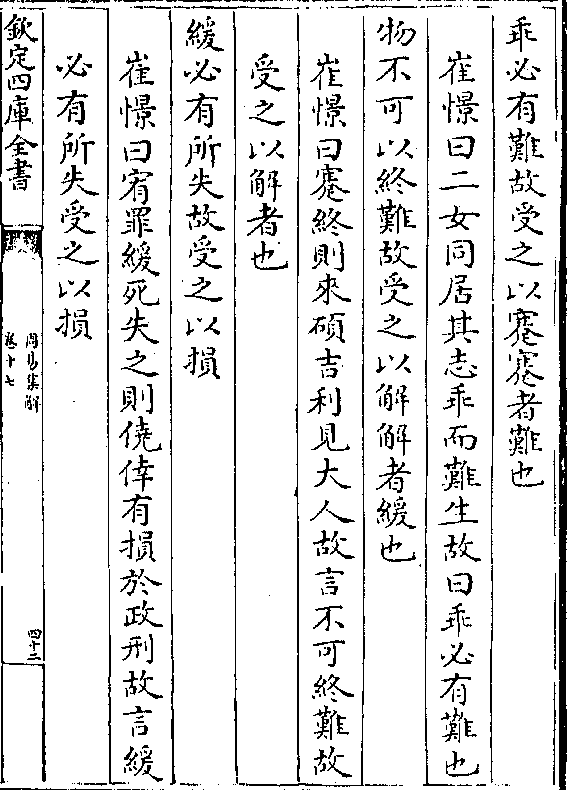 乖必有難故受之以蹇蹇者難也
崔憬曰二女同居其志乖而難生故曰乖必有難也
物不可以終難故受之以解解者緩也
崔憬曰蹇終則來碩吉利見大人故言不可終難故
受之以解者也
緩必有所失故受之以損
崔憬曰宥罪緩死失之則僥倖有損於政刑故言緩
必有所失受之以損
欽定四庫全書
周易集解
卷十七
四十二